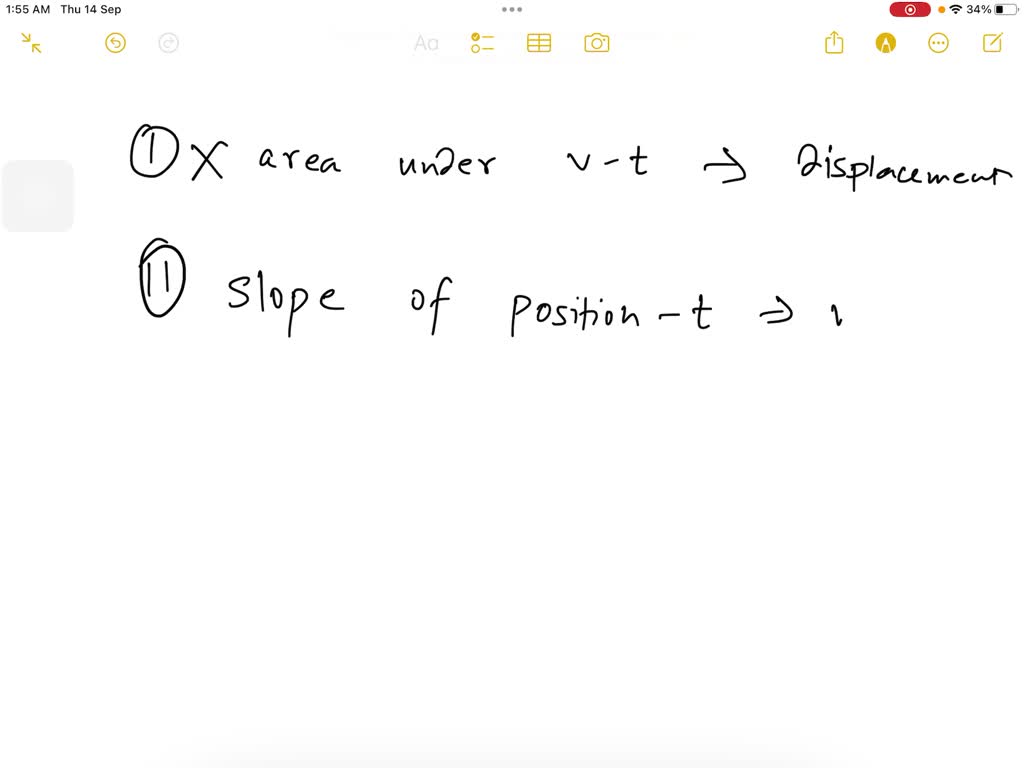 1:55 AM Thu 14 Sep
34%
Aa
I X area under v-t ⇒ Displacement
II slope of position-t ⇒